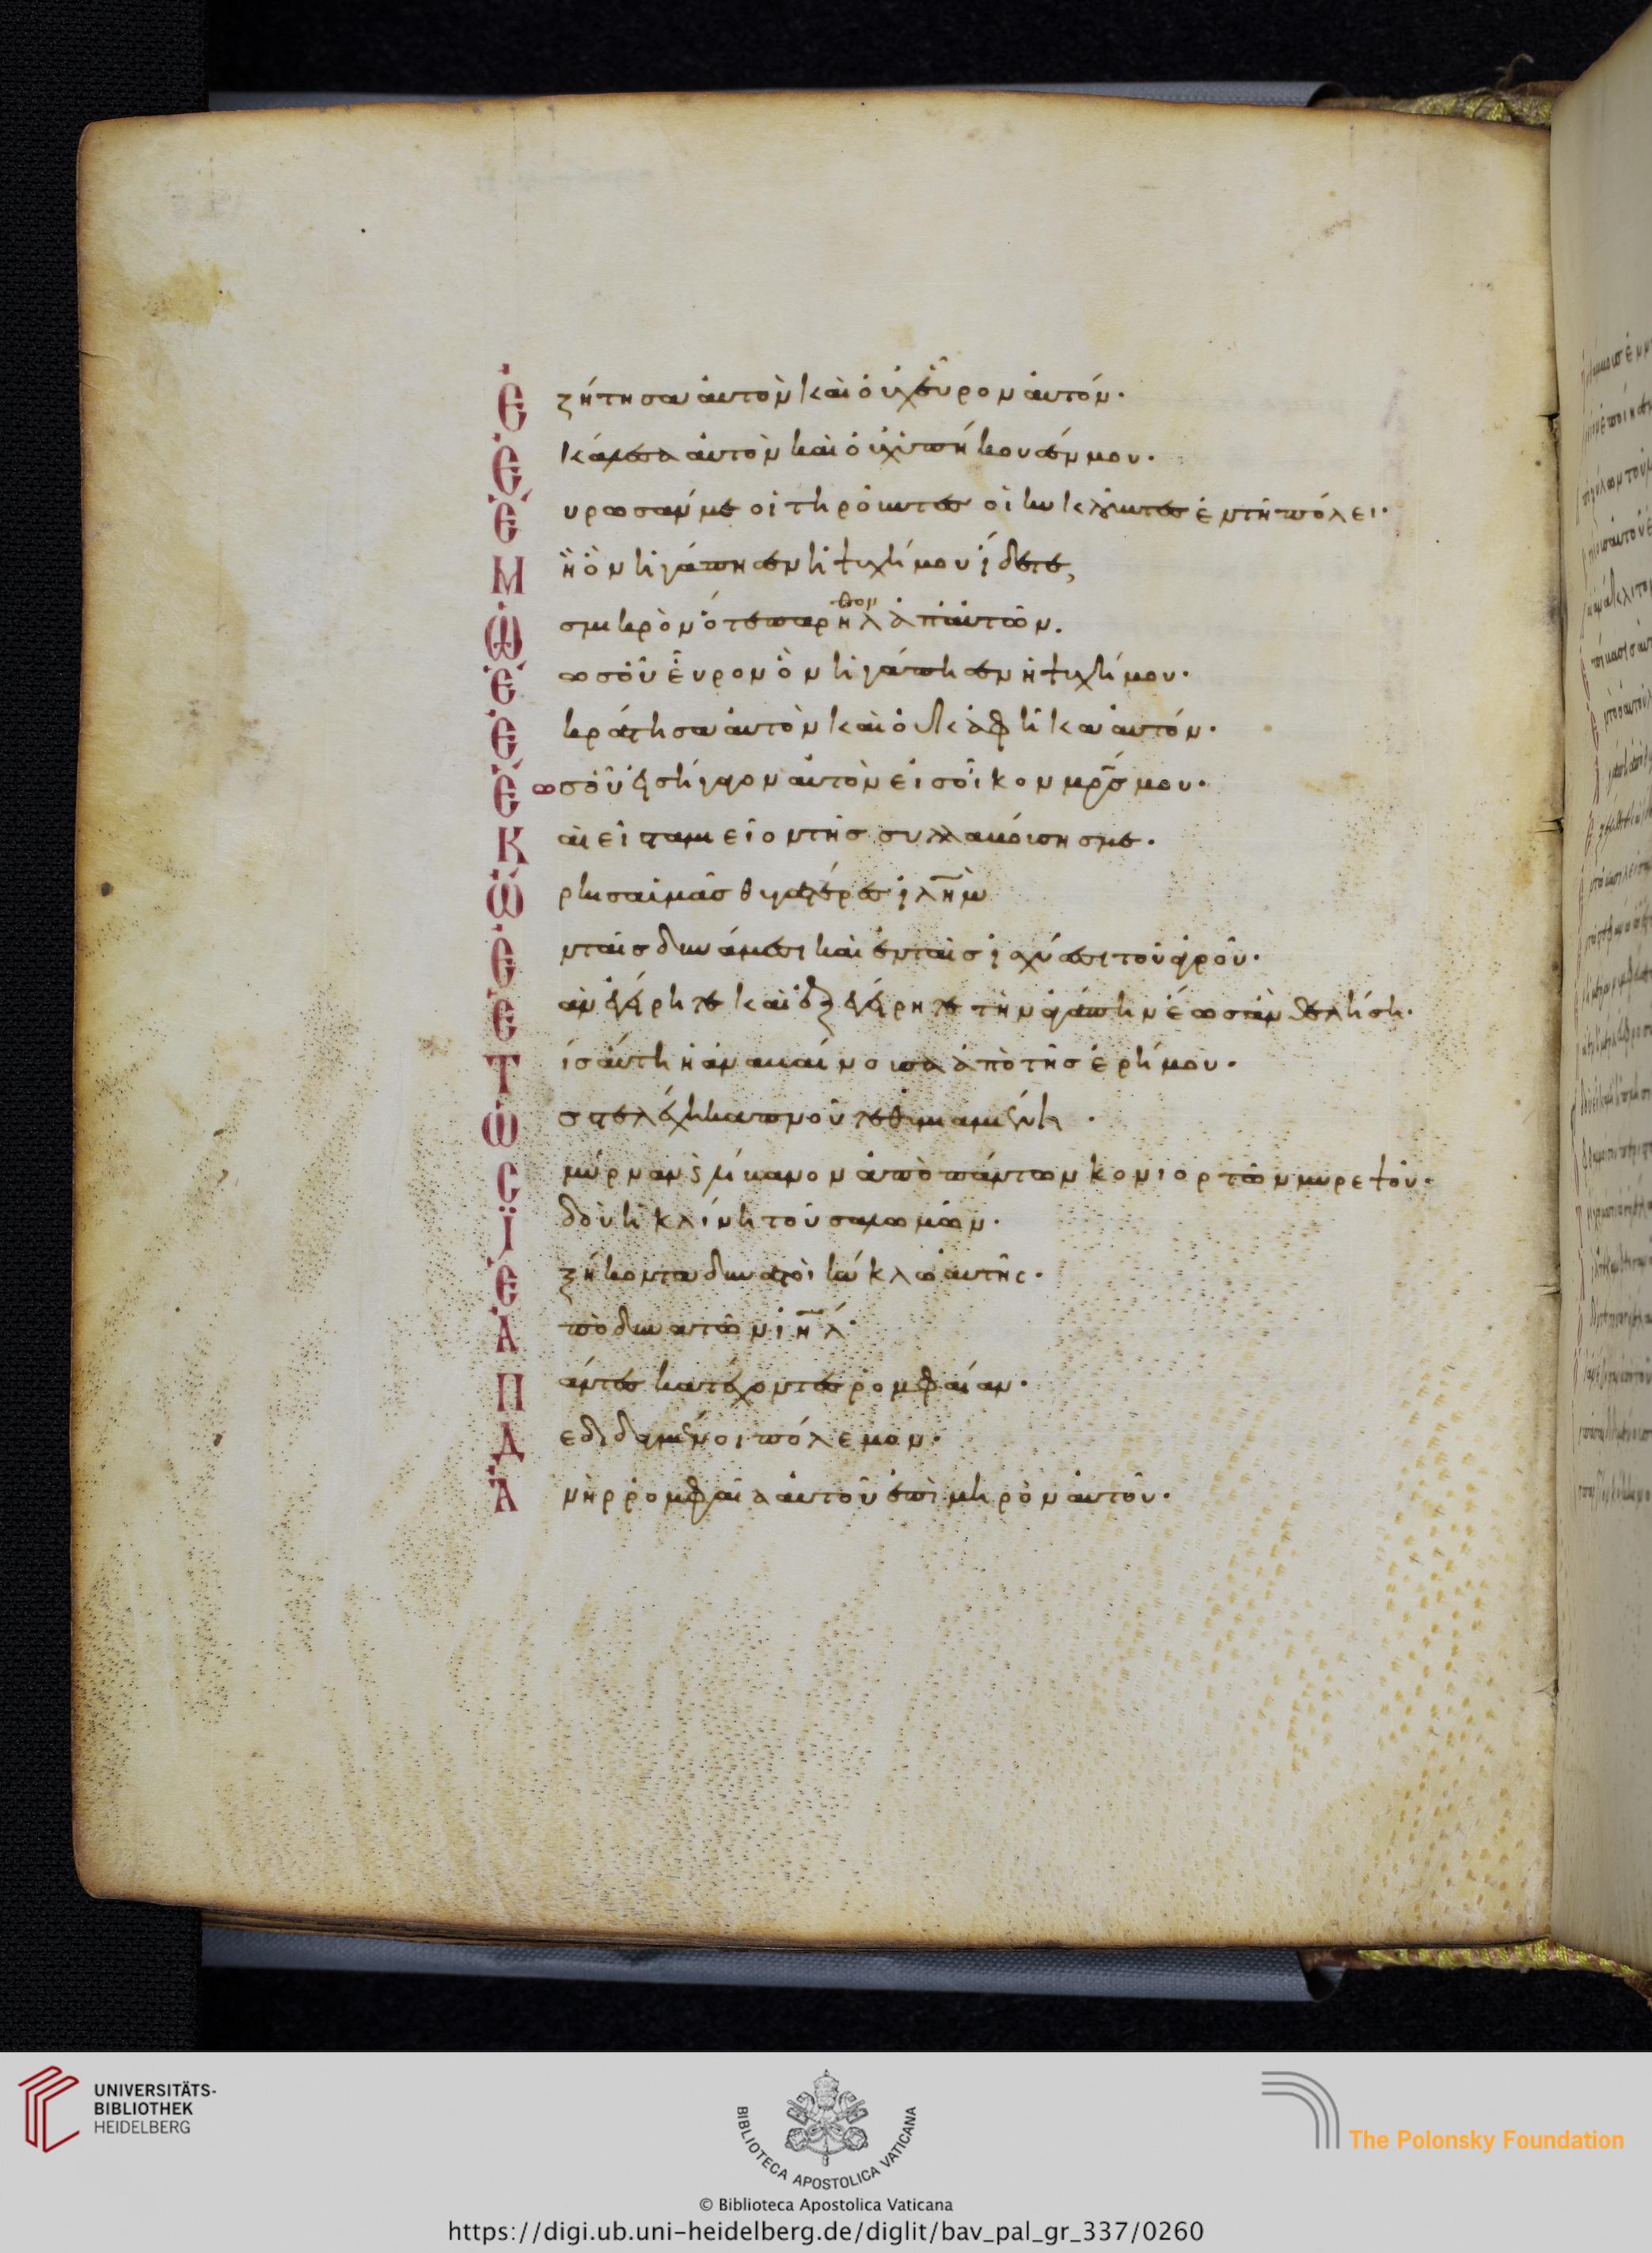 Ἐζήτησα αὐτὸν καὶ οὐχ εὗρον αὐτόν·
Ἐκάλεσα αὐτὸν καὶ οὐχ ὑπήκουσέν μου·
Εὕρωσάν με οἱ τηροῦντες οἱ κυκλοῦντες ἐν τῇ πόλει·
Μὴ ὃν ἠγάπησεν ἡ ψυχή μου ἴδετε,
Ὡς μικρὸν ὅτε παρῆλθον ἀπ' αὐτῶν.
Ἕως οὗ εὗρον ὃν ἠγάπησεν ἡ ψυχή μου·
Ἐκράτησα αὐτὸν καὶ οὐκ ἀφῆκα αὐτόν·
Ἕως οὗ εἰσήγαγον αὐτὸν εἰς οἶκον μρς μου·
Καὶ εἰ ταμεῖον τῆς συλλαβούσης με·
Ὥρκησα ὑμᾶς θυγατέρες ιλημ
Ἐν ταῖς δυνάμεσι καὶ ἐν ταῖς ἰσχύσεσι τοῦ ἀγροῦ·
Ἐὰν ἐγείρητε καὶ ἐξεγείρητε τὴν ἀγάπην ἕως ἂν θελήσῃ·
Τίς αὕτη ἡ ἀναβαίνουσα ἀπὸ τῆς ἐρήμου·
Ὡς στελέχη καπνοῦ τεθυμιαμένη ·
Σμύρναν ϗ λίβανον ἀπὸ πάντων κονιορτῶν μυρεψοῦ·
Ἰδοὺ ἡ κλίνη τοῦ σαλωμών·
Ἑξήκοντα δυνατοὶ κύκλῳ αὐτῆς·
Ἀπὸ δυνατῶν ιηλ·
Πάντες κατέχοντες ῥομφαίαν·
Δεδιδαγμένοι πόλεμον·
Ἀνὴρ ῥομφαῖα αὐτοῦ ἐπὶ μηρὸν αὐτοῦ·
UNIVERSITÄTS-
BIBLIOTHEK
HEIDELBERG
BIBLIOTECA APOSTOLICA VATICANA
The Polonsky Foundation
© Biblioteca Apostolica Vaticana
https://digi.ub.uni-heidelberg.de/diglit/bav_pal_gr_337/0260